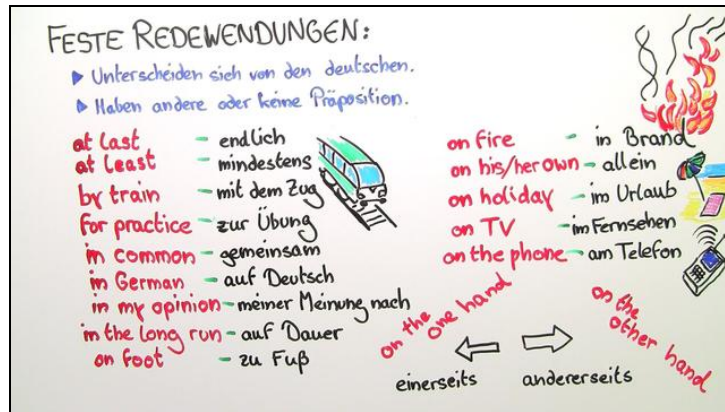 FESTE REDEWENDUNGEN:
▶ Unterscheiden sich von den deutschen.
▶ Haben andere oder keine Präposition.
at last – endlich
at least – mindestens
by train – mit dem Zug
for practice – zur Übung
in common – gemeinsam
in German – auf Deutsch
in my opinion – meiner Meinung nach
in the long run – auf Dauer
on foot – zu Fuß
on fire – in Brand
on his/her own – allein
on holiday – im Urlaub
on TV – im Fernsehen
on the phone – am Telefon
on the one hand
einerseits
on the
other hand
andererseits